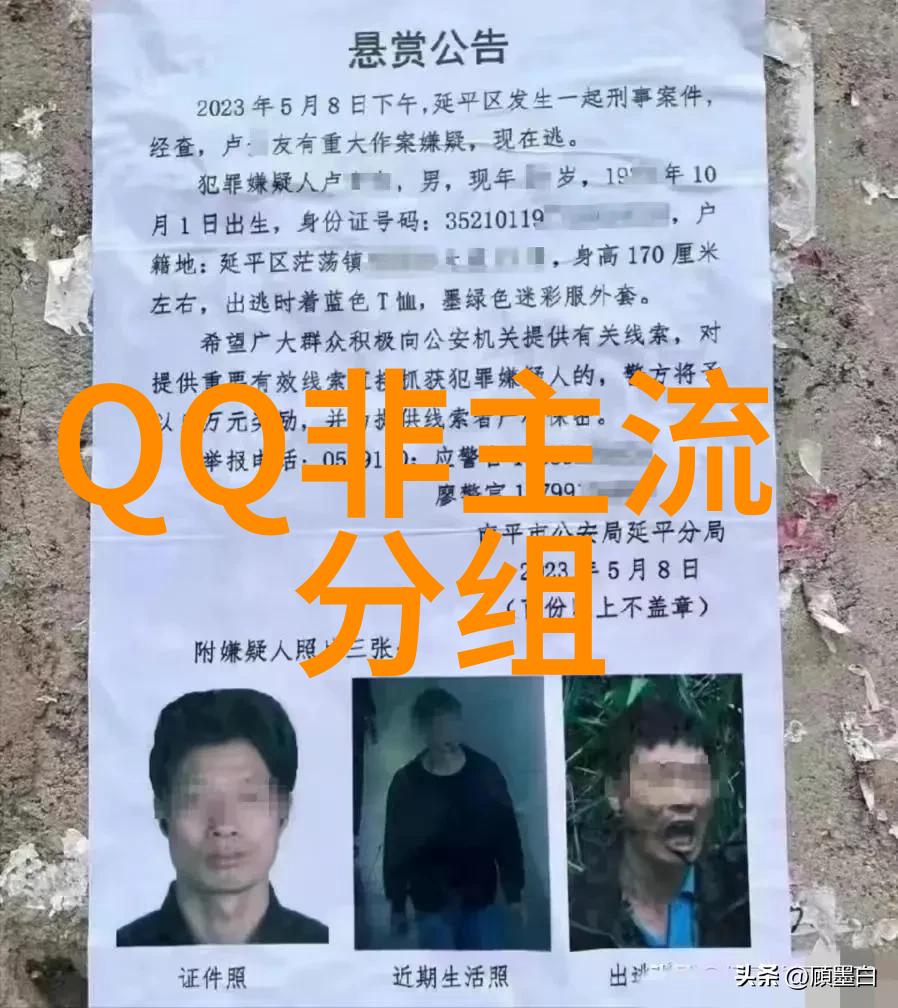 悬赏公告
2023年5月8日下午,延平区发生一起刑事案件,
经查,卢 友有重大作案嫌疑,现在逃。
犯罪嫌疑人卢 ,男,现年 岁,19 年10
月1日出生,身份证号码:35210119 ,户
籍地:延平区茫荡镇 ,身高170厘米
左右,出逃时着蓝色T恤,墨绿色迷彩服外套。
希望广大群众积极向公安机关提供有关线索,对
提供重要有效线索 抓获犯罪嫌疑人的,警方将予
以 万元奖励,并 提供线索者 保密。
举报电话: 应警官
廖警官
QQ非主流
分组
南平市公安局延平分局
2023年5月8日
上不盖章)
附嫌疑人照 三张
证件照
近期生活照
出逃
头条 @顾墨白